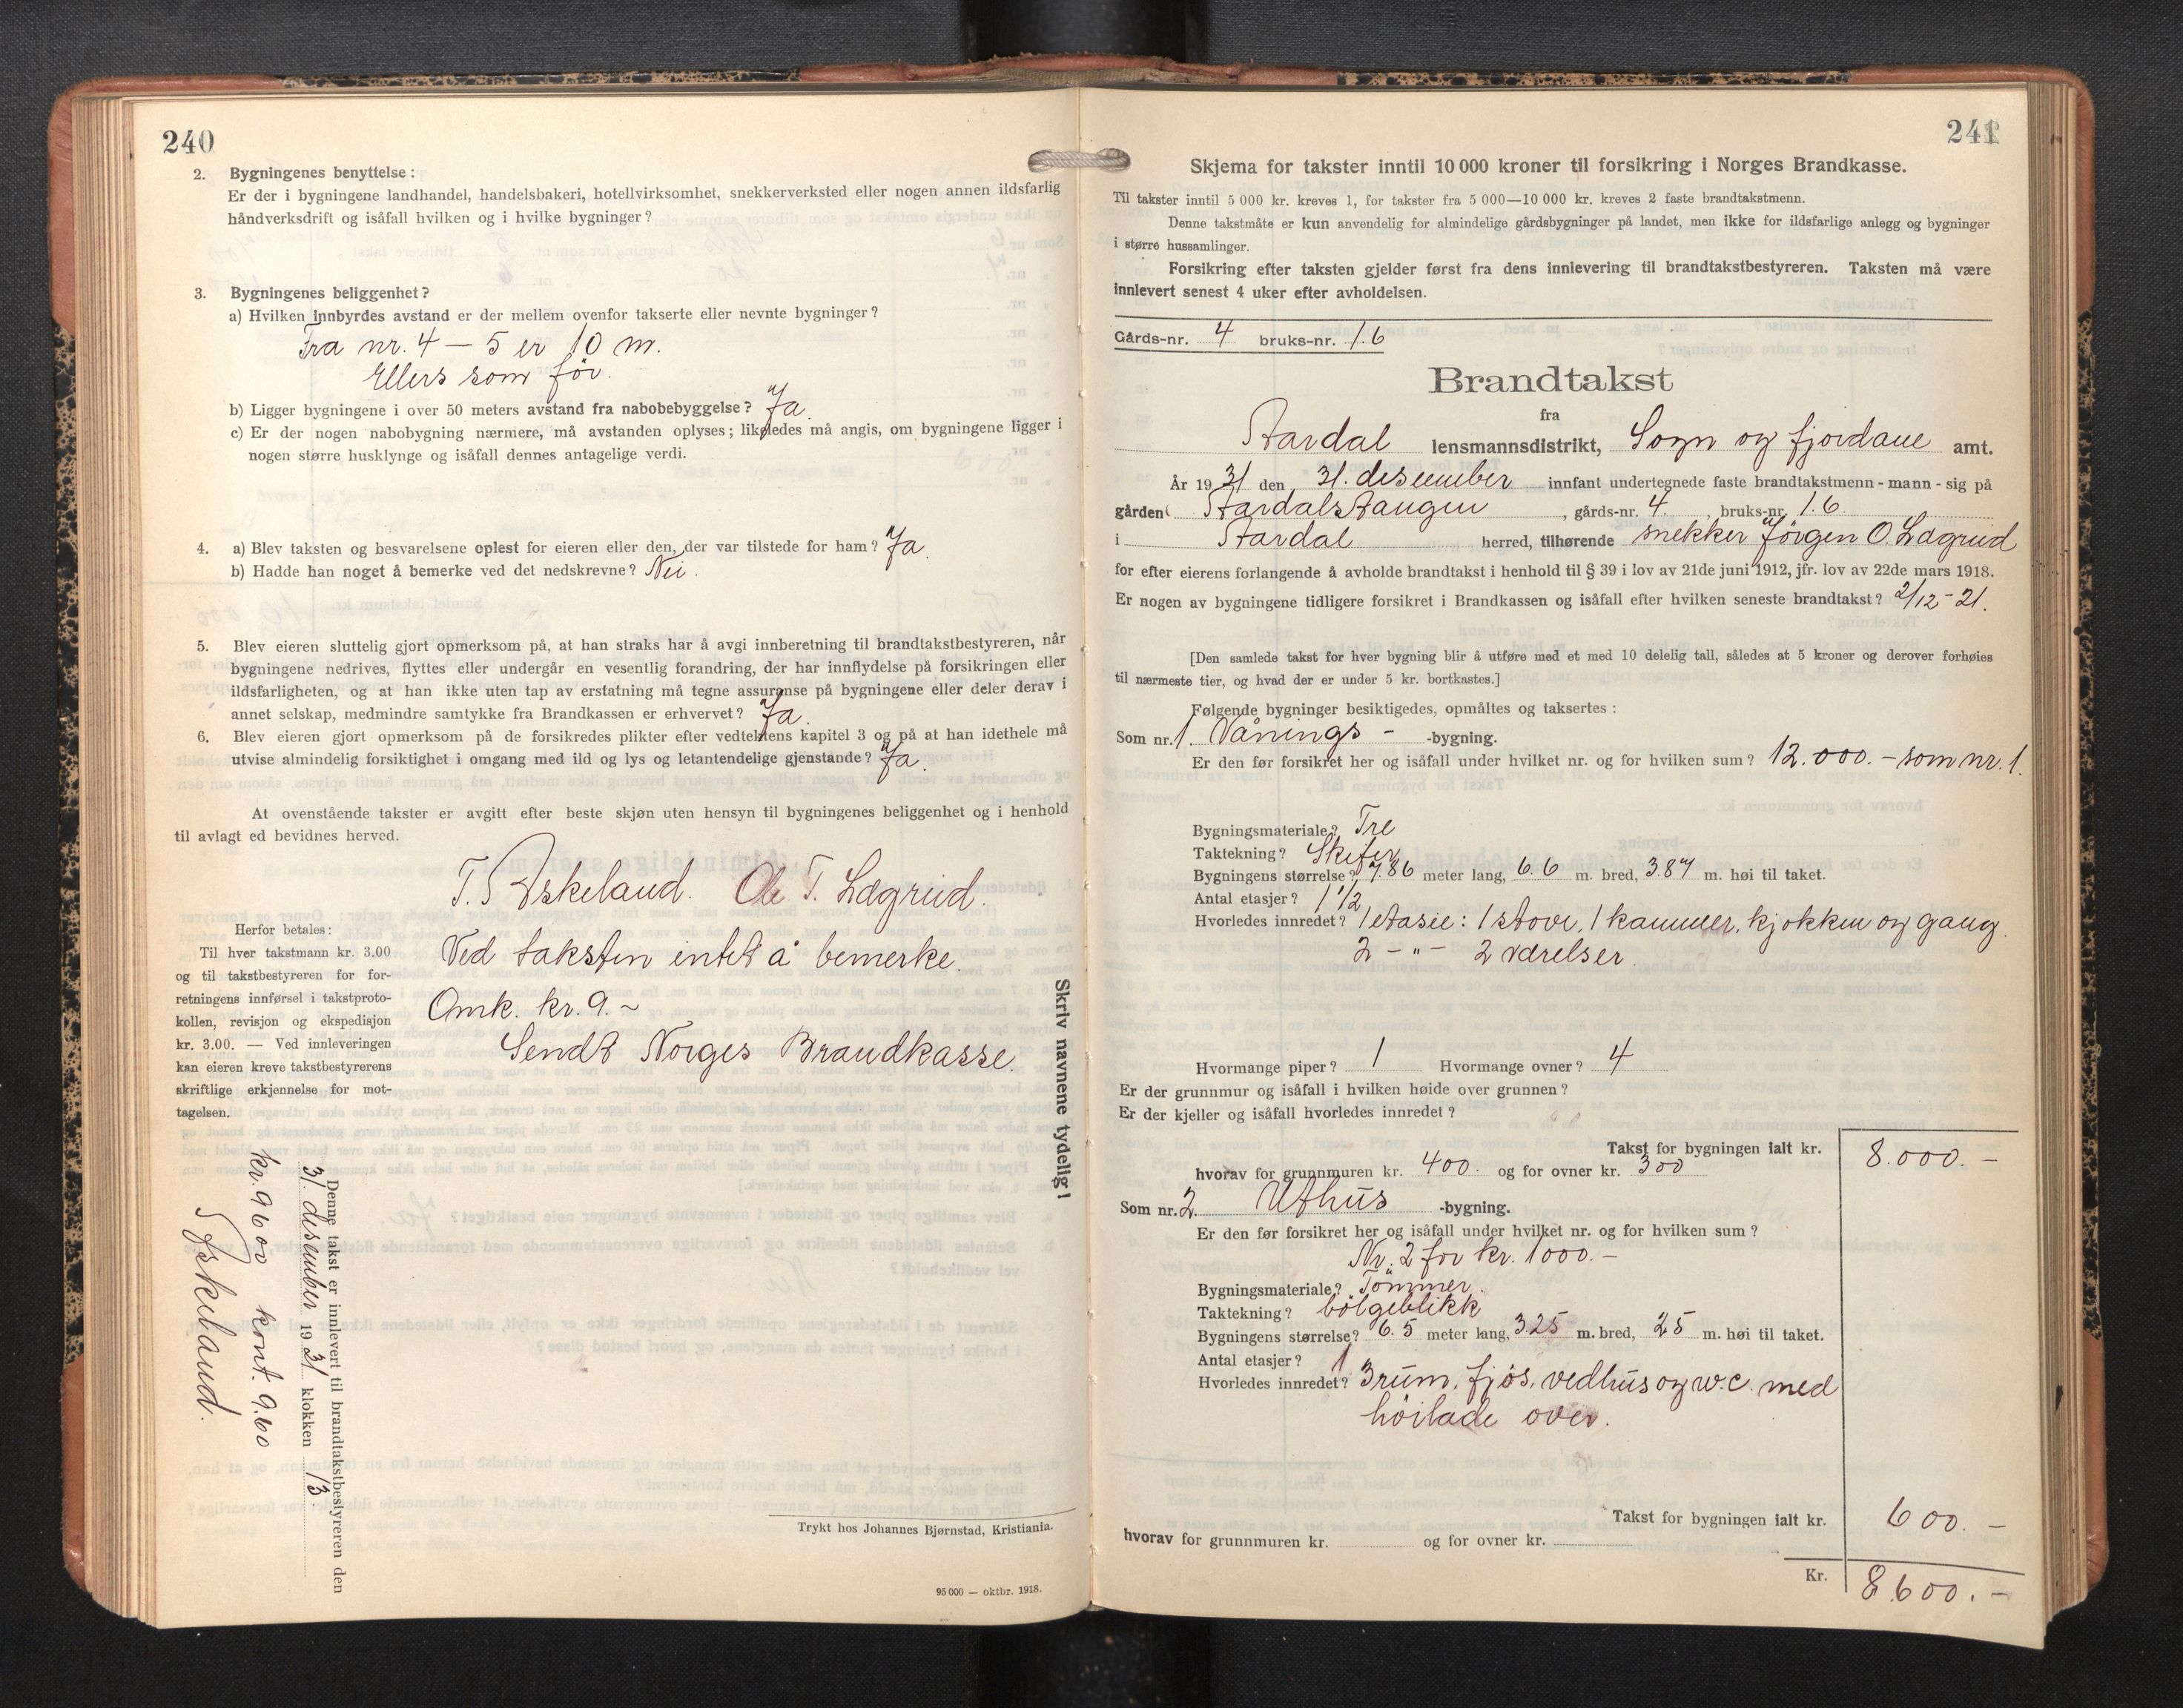 240
2. Bygningenes benyttelse:
Er der i bygningene landhandel, handelsbakeri, hotellvirksomhet, snekkerverksted eller nogen annen ildsfarlig
håndverksdrift og isåfall hvilken og i hvilke bygninger?
3. Bygningenes beliggenhet?
a) Hvilken innbyrdes avstand er der mellem ovenfor takserte eller nevnte bygninger?
Fra nr. 4 — 5 er 10 m.
Ellers som før.
b) Ligger bygningene i over 50 meters avstand fra nabobebyggelse? Ja.
c) Er der nogen nabobygning nærmere, må avstanden oplyses; likeledes må angis, om bygningene ligger i
nogen større husklynge og isåfall dennes antagelige verdi.
4. a) Blev taksten og besvarelsene oplest for eieren eller den, der var tilstede for ham? Ja.
b) Hadde han noget å bemerke ved det nedskrevne? Nei.
5. Blev eieren sluttelig gjort opmerksom på, at han straks har å avgi innberetning til brandtakstbestyreren, når
bygningene nedrives, flyttes eller undergår en vesentlig forandring, der har innflydelse på forsikringen eller
ildsfarligheten, og at han ikke uten tap av erstatning må tegne assuranse på bygningene eller deler derav i
annet selskap, medmindre samtykke fra Brandkassen er erhvervet? Ja.
6. Blev eieren gjort opmerksom på de forsikredes plikter efter vedtektens kapitel 3 og på at han idethele må
utvise almindelig forsiktighet i omgang med ild og lys og letantendelige gjenstande? Ja.
At ovenstående takster er avgitt efter beste skjøn uten hensyn til bygningenes beliggenhet og i henhold
til avlagt ed bevidnes herved.
T. Askeland. Ole T. Lægrud.
Ved taksten intet å bemerke.
Omk. kr. 9.-
Sendt Norges Brandkasse.
Herfor betales:
Til hver takstmann kr. 3.00
og til takstbestyreren for for-
retningens innførsel i takstproto-
kollen, revisjon og ekspedisjon
kr. 3.00. — Ved innleveringen
kan eieren kreve takstbestyrerens
skriftlige erkjennelse for mot-
tagelsen.
Skriv navnene tydelig!
Denne takst er innlevert til brandtakstbestyreren den
31. desember 1931 klokken 13.
kr. 9600 kont. 9.60
Askeland.
Trykt hos Johannes Bjørnstad, Kristiania.
95 000 — oktbr. 1918.
241
Skjema for takster inntil 10 000 kroner til forsikring i Norges Brandkasse.
Til takster inntil 5 000 kr. kreves 1, for takster fra 5 000—10 000 kr. kreves 2 faste brandtakstmenn.
Denne takstmåte er kun anvendelig for almindelige gårdsbygninger på landet, men ikke for ildsfarlige anlegg og bygninger
i større hussamlinger.
Forsikring efter taksten gjelder først fra dens innlevering til brandtakstbestyreren. Taksten må være
innlevert senest 4 uker efter avholdelsen.
Gårds-nr. 4 bruks-nr. 16
Brandtakst
fra
Årdal lensmannsdistrikt, Sogn og fjordane amt.
År 1931 den 31. desember innfant undertegnede faste brandtakstmenn - mann - sig på
gården Årdalstangen, gårds-nr. 4, bruks-nr. 16
i Årdal herred, tilhørende snekker Jørgen O. Lægrud
for efter eierens forlangende å avholde brandtakst i henhold til § 39 i lov av 21de juni 1912, jfr. lov av 22de mars 1918.
Er nogen av bygningene tidligere forsikret i Brandkassen og isåfall efter hvilken seneste brandtakst? 2/12-21.
[Den samlede takst for hver bygning blir å utføre med et med 10 delelig tall, således at 5 kroner og derover forhøies
til nærmeste tier, og hvad der er under 5 kr. bortkastes.]
Følgende bygninger besiktigedes, opmåltes og taksertes:
Som nr. 1. Vånings - -bygning.
Er den før forsikret her og isåfall under hvilket nr. og for hvilken sum? 12.000.- som nr. 1.
Bygningsmateriale? Tre
Taktekning? Skifer
Bygningens størrelse? 7.86 meter lang, 6.6 m. bred, 3.87 m. høi til taket.
Antal etasjer? 1 1/2
Hvorledes innredet? 1 etasie: 1 stove, 1 kammer, kjøkken og gang.
2 - " - 2 værelser.
Hvormange piper? 1 Hvormange ovner? 4
Er der grunnmur og isåfall i hvilken høide over grunnen?
Er der kjeller og isåfall hvorledes innredet?
Takst for bygningen ialt kr. 8.000.-
hvorav for grunnmuren kr. 400. og for ovner kr. 300
Som nr. 2. Uthus -bygning.
Er den før forsikret her og isåfall under hvilket nr. og for hvilken sum?
Nr. 2 for kr. 1000.-
Bygningsmateriale? Tømmer.
Taktekning? bølgeblikk
Bygningens størrelse? 6.5 meter lang, 3.25 m. bred, 2.5 m. høi til taket.
Antal etasjer? 1
Hvorledes innredet? 3 rum, fjøs, vedhus og w.c. med
høilade over.
Takst for bygningen ialt kr. 600.-
hvorav for grunnmuren kr. og for ovner kr.
Kr. 8.600.-